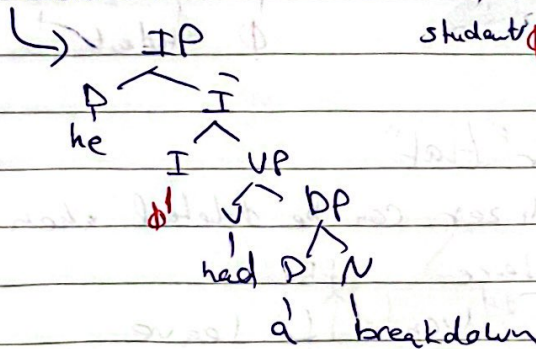 IP student's
D Ī
he
I VP
ф'
V DP
had D N
a breakdown